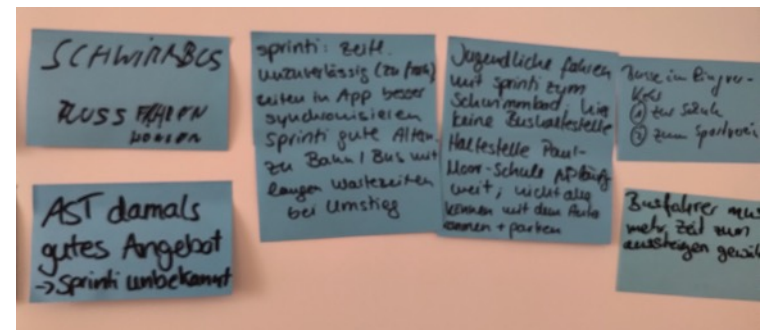 SCHWIMMBUS
MUSS FAHREN
KÖNNEN
AST damals
gutes Angebot
→ Sprinti unbekannt
sprinti: zeitl.
unzuverlässig (zu früh)
zeiten in App besser
synchronisieren
Sprinti gute Altern.
zu Bahn / Bus mit
langen Wartezeiten
bei Umstieg
Jugendliche fahren
mit sprinti zum
Schwimmbad, hier
keine Bushaltestelle
Haltestelle Paul-
Moor-Schule
weit, nicht alle
können mit dem Auto
kommen + parken
Busse im Ringver-
kehr
① zur Schule
② zum Sportverein
Busfahrer mus
mehr Zeit zum
aussteigen gewäh